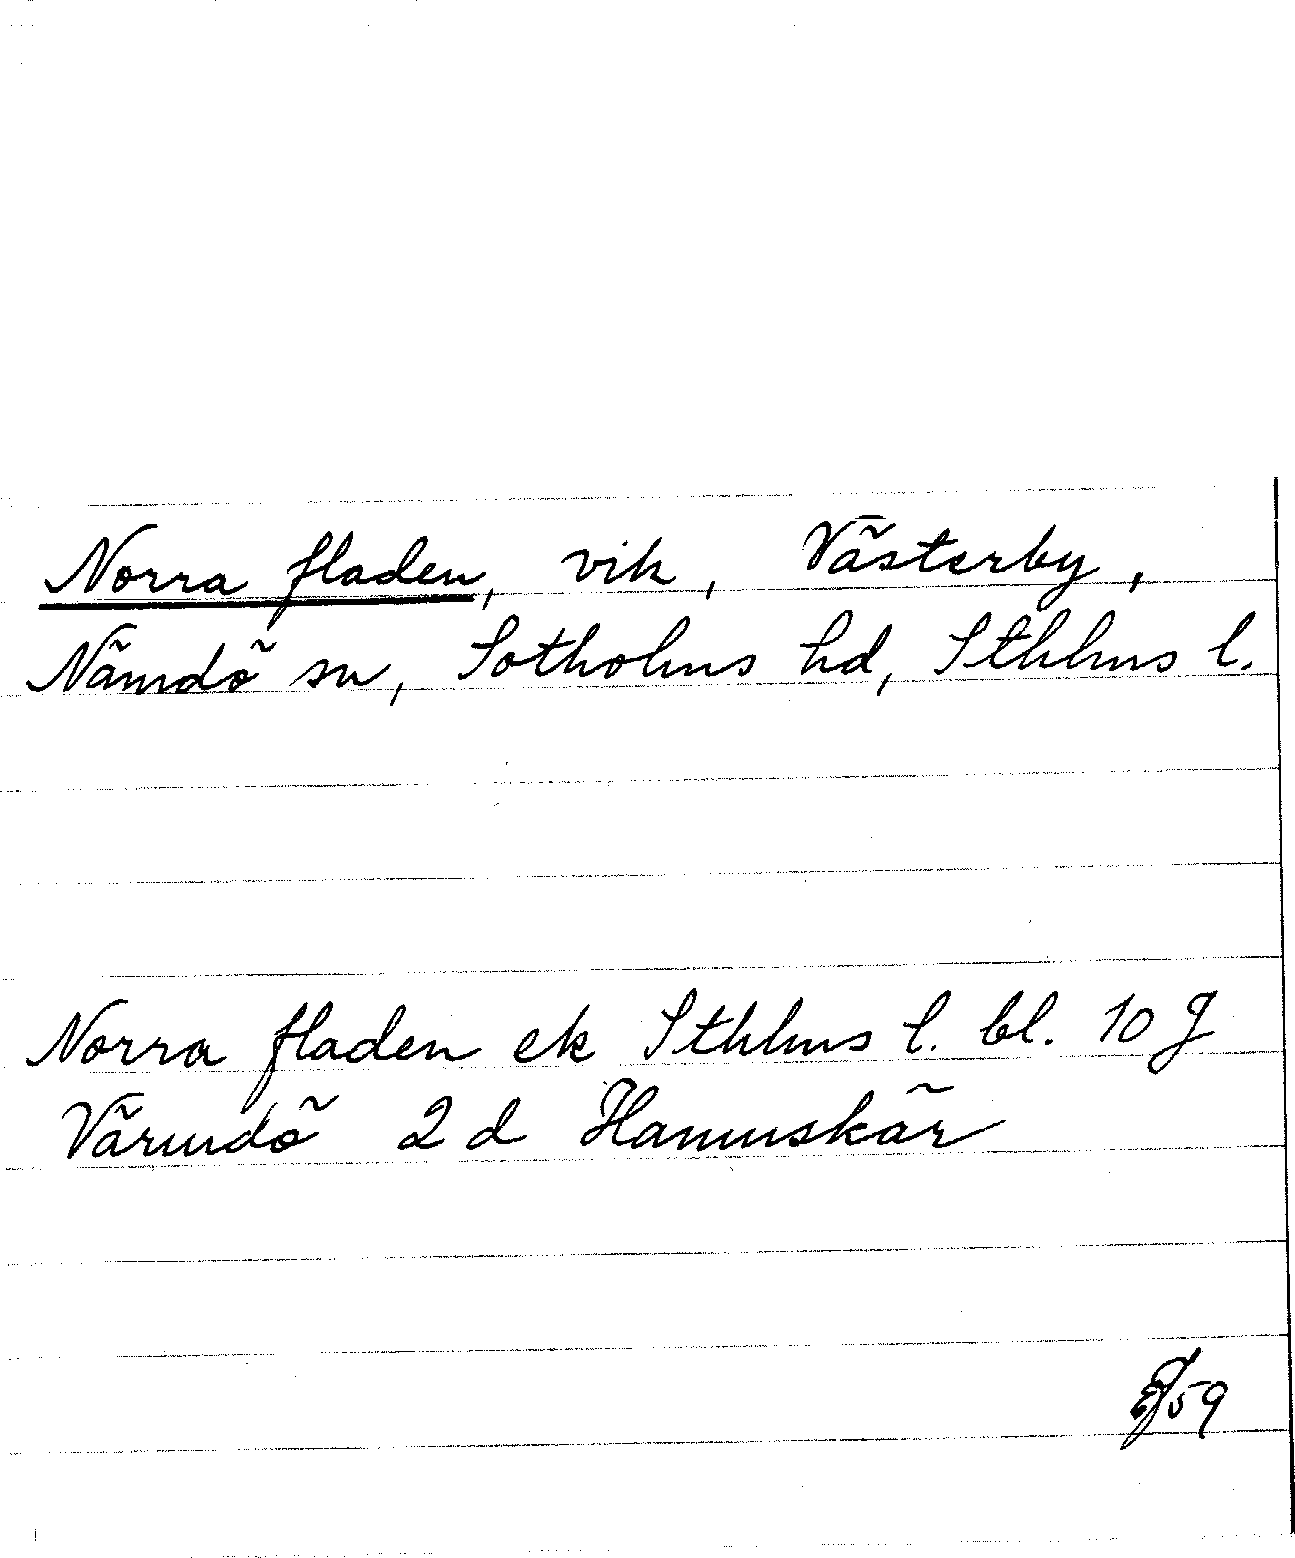 Norra fladen, vik, Västerby,
Nämdö sn, Sotholms hd, Sthlms l.
Norra fladen ek Sthlms l. bl. 10 J
Värmdö 2 d Hamnskär
59